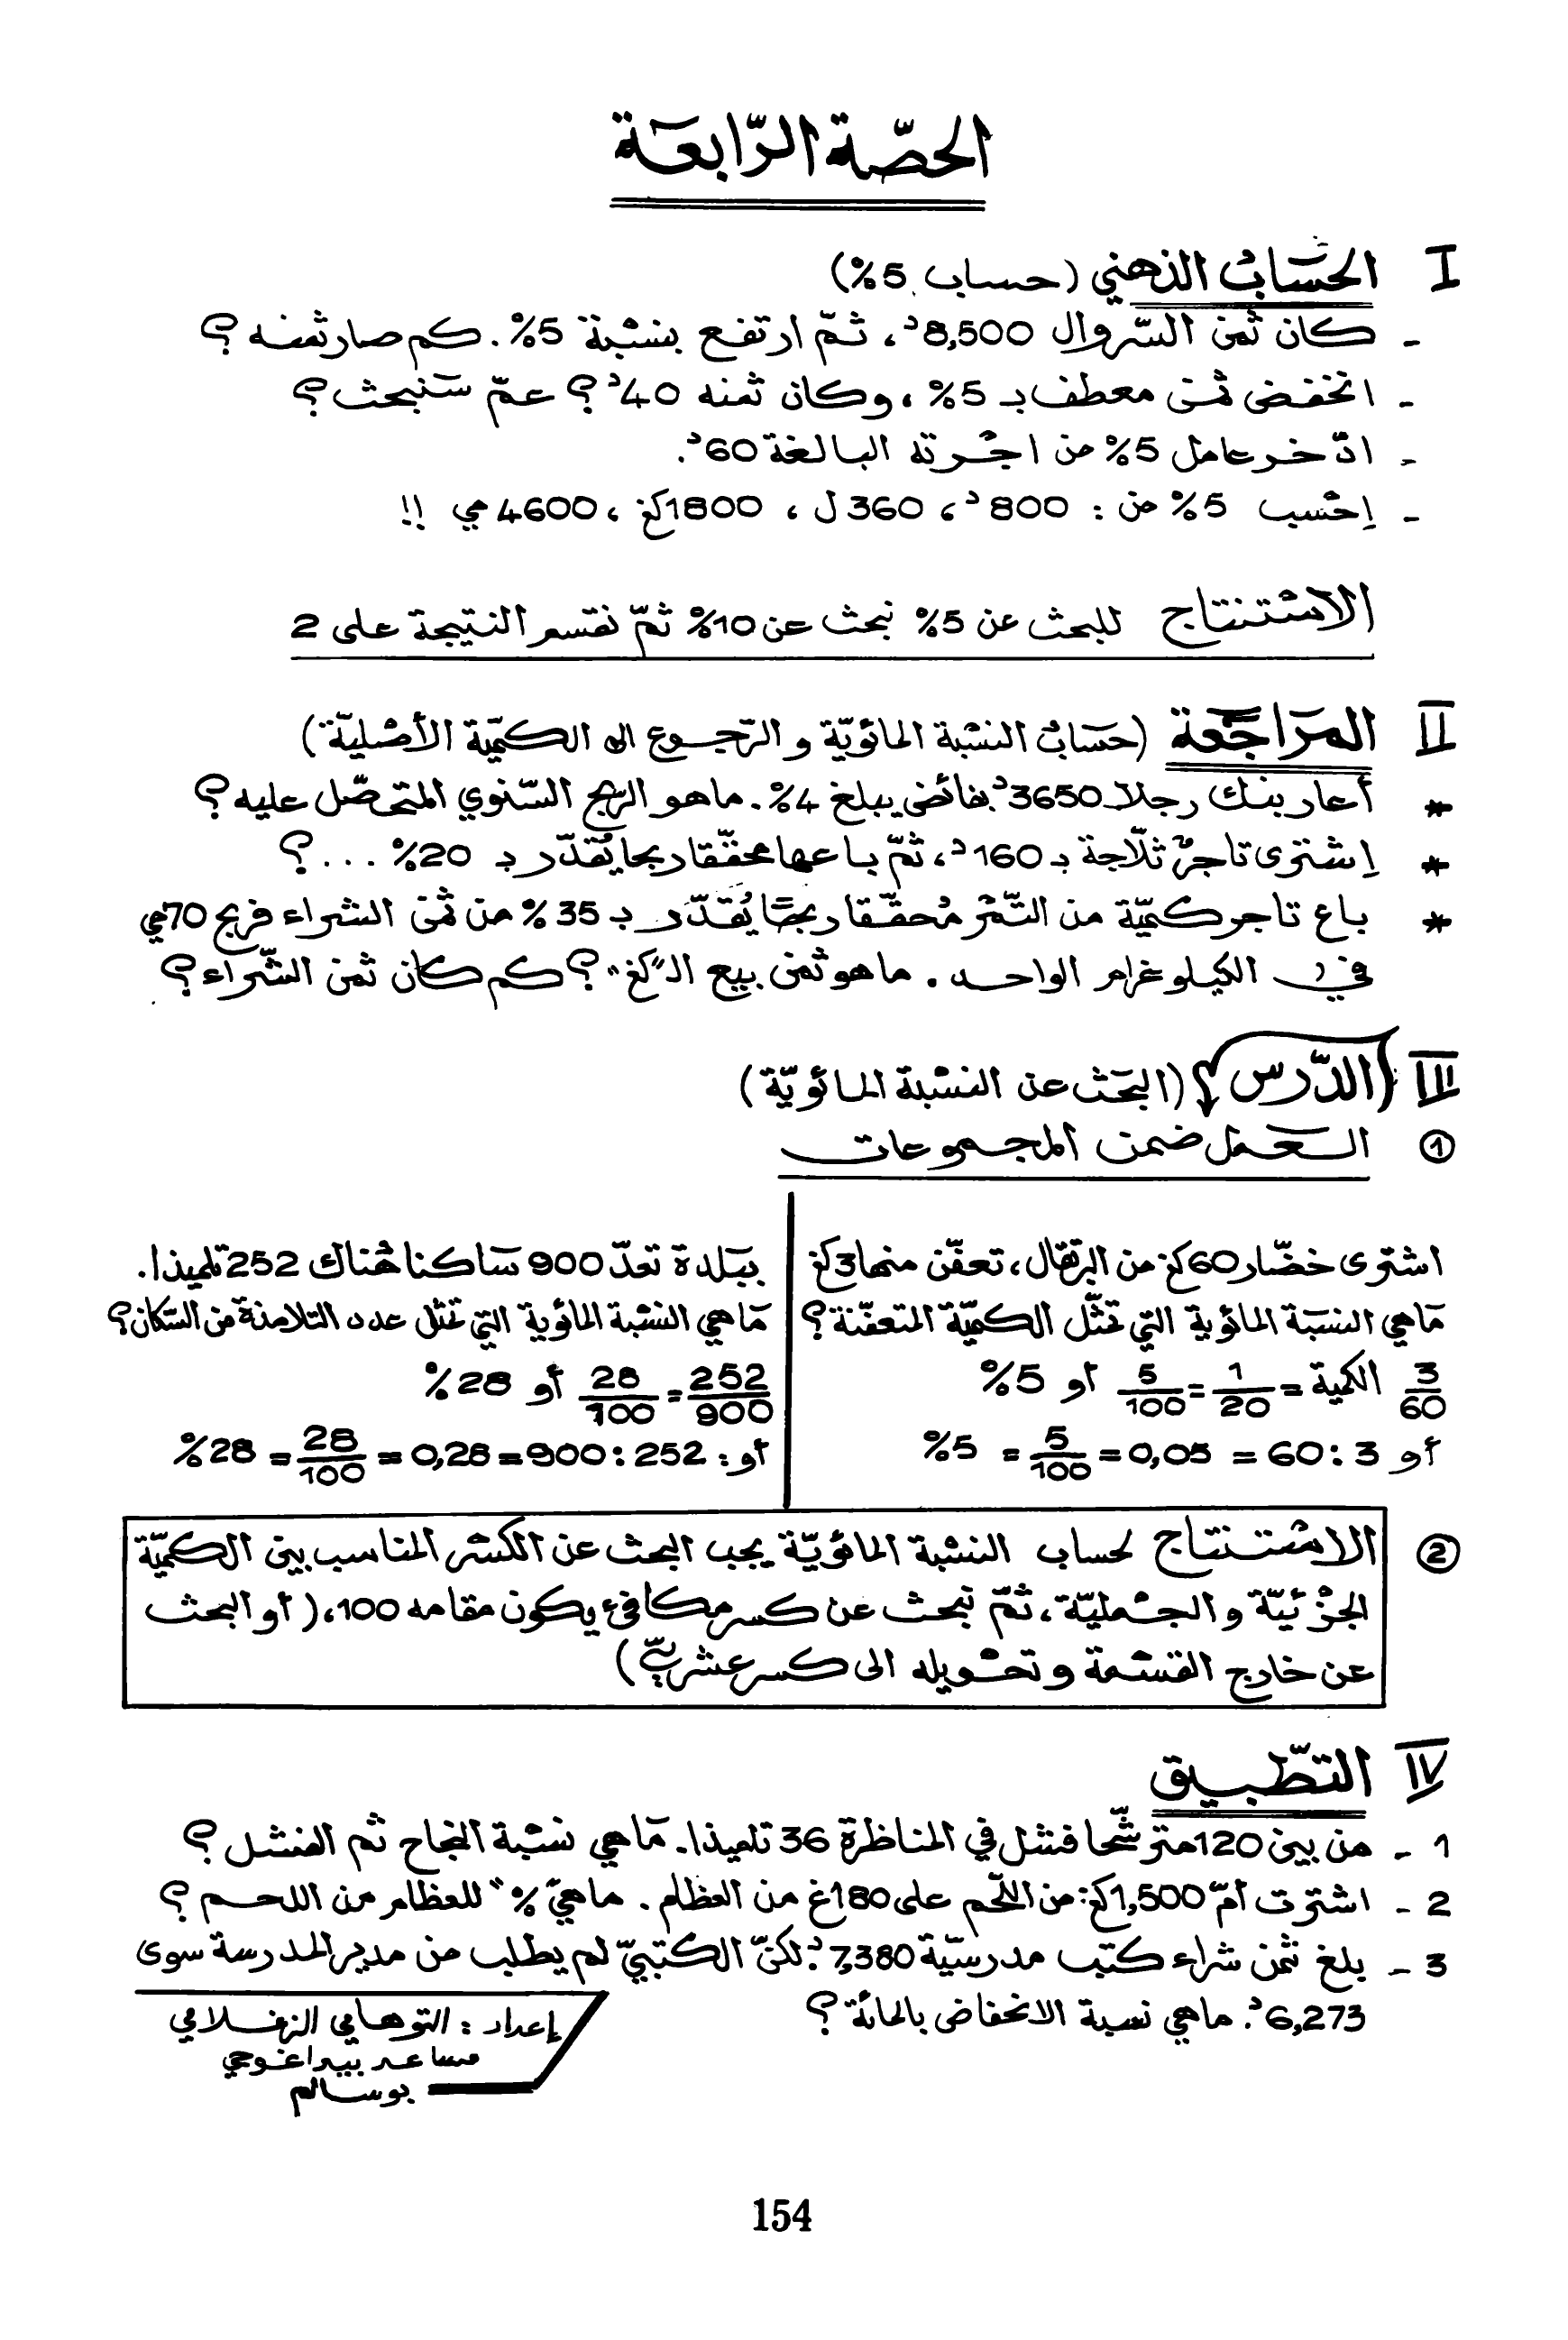 الحصّة الرّابعة
I الحسَابُ الذهني (حساب 5%)
- كان ثمن السّروال 8,500د، ثمّ ارتفع بنسْبة 5%. كم صار ثمنه ؟
- انخفض ثمن معطف بـ 5%، وكان ثمنه 40د ؟ عمّ سَنبحث ؟
- ادّخر عامل 5% من اجْرته البالغة 60د.
- إحْسب 5% من : 800د، 360ل، 1800كغ، 4600مي !!
الاسْتنتاج للبحث عن 5% نبحث عن 10% ثمّ نقسم النتيجة على 2
II المرَاجَعَة (حسَابُ النسْبة المائويّة و الرّجوع الى الكميّة الأصْليّة)
* أعار بنك رجلا 3650د بفائض يبلغ 4%. ماهو الربح السّنوي المتحصّل عليه ؟
* إشترى تاجرٌ ثلّاجة بـ 160د، ثمّ باعها محقّقا ربحا يُقدّر بـ 20% ... ؟
* باع تاجر كميّة من التّمْر مُحقّقا ربحًا يُقَدّر بـ 35% من ثمن الشراء فربح 70مي
في الكيلوغرام الواحد. ماهو ثمن بيع الـ"كغ" ؟ كم كان ثمن الشّراء ؟
III الدّرس (البَحْث عن النسْبة المائويّة)
① العَمل ضمن المجموعات
اشترى خضّار 60كغ من البرتقال، تعفّن منها 3كغ
مَاهي النسبَة المائوية التي تمثّل الكميّة المتعفّنة ؟
3/60 الكمية = 1/20 = 5/100 أو 5%
أو 3 : 60 = 0,05 = 5/100 = 5%
ببَلدة تعدّ 900 سَاكنا هُناك 252 تلميذا.
مَاهي النسْبة المائوية التي تمثل عدد التلامذة من السّكان ؟
252/900 = 28/100 أو 28%
أو : 252 : 900 = 0,28 = 28/100 = 28%
② الاسْتنتاج لحساب النسْبة المائويّة يجب البحث عن الكسْر المناسب بين الكميّة
الجزْئيّة و الجمْليّة، ثمّ نبحث عن كسر مكافئ يكون مقامه 100، (أو البحث
عن خارج القسْمة و تحْويله الى كسر عشريّ)
IV التطّبيق
1 - من بين 120 مترشّحا فشل في المناظرة 36 تلميذا. مَاهي نسْبة النجاح ثم الفشل ؟
2 - اشترت أمّ 1,500كغ من اللّحم على 180غ من العظام. ماهي "%" للعظام من اللحم ؟
3 - بلغ ثمن شراء كتب مدرسيّة 7,380د. لكنّ الكتبيّ لم يطلب من مدير المدرسة سوى
6,273د. ماهي نسبة الانخفاض بالمائة ؟
إعداد : التوهامي الزغلامي
مساعد بيداغوجي
بوسالم
154